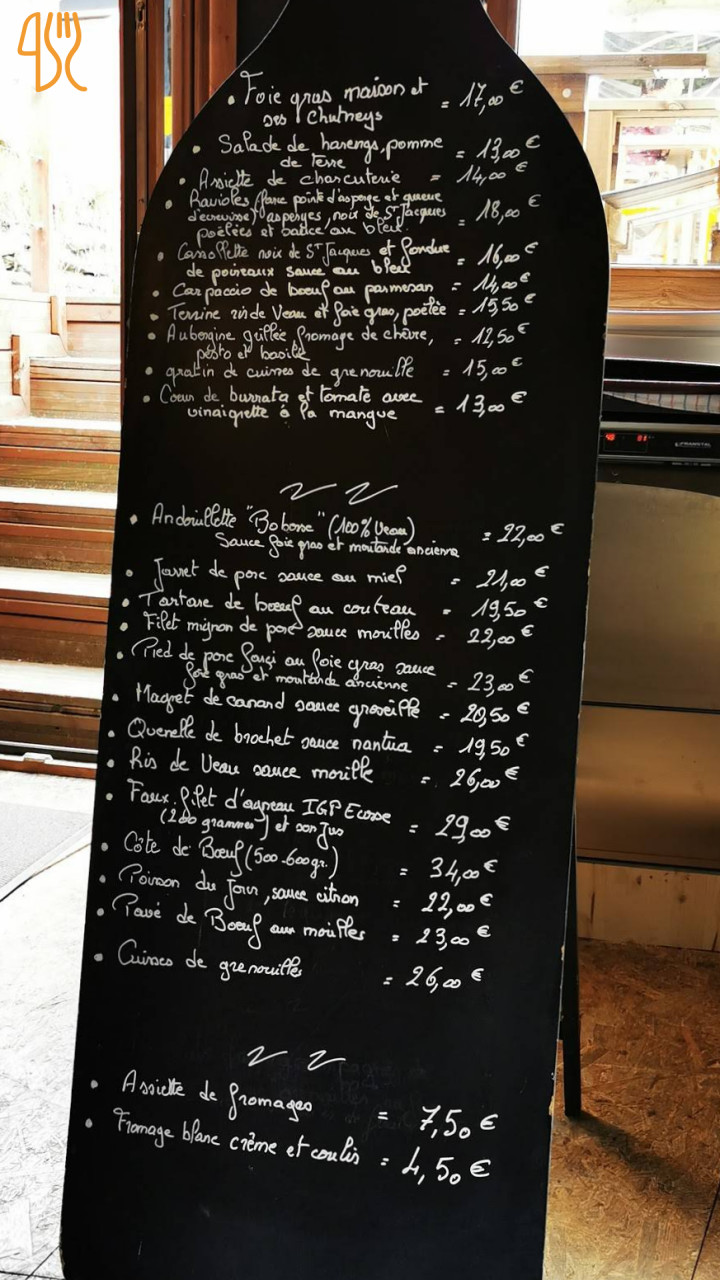 • Foie gras maison et = 17,00 €
ses Chutneys
• Salade de harengs, pomme = 13,00 €
de terre
• Assiette de charcuterie = 14,00 €
• Ravioles farce pointe d'asperge et queue
d'écrevisse, asperges, noix de St Jacques = 18,00 €
poêlées et au bleu.
• Cassollette noix de St Jacques et fondue = 16,00 €
de poireaux sauce au bleu
• Carpaccio de boeuf au parmesan = 14,00 €
• Terrine ris de Veau et foie gras, poêlée = 15,50 €
• Aubergine grillée, fromage de chèvre, = 12,50 €
pesto et basilic
• gratin de cuisses de grenouille = 15,00 €
• Coeur de burrata et tomate avec
vinaigrette à la mangue = 13,00 €
• Andouillette "Bobosse" (100% Veau) = 22,00 €
Sauce foie gras et moutarde ancienne
• Jarret de porc sauce au miel = 21,00 €
• Tartare de boeuf au couteau = 19,50 €
• Filet mignon de porc sauce morilles = 22,00 €
• Pied de porc farçi au foie gras sauce
foie gras et moutarde ancienne = 23,00 €
• Magret de canard sauce groseille = 20,50 €
• Quenelle de brochet sauce nantua = 19,50 €
• Ris de Veau sauce morille = 26,00 €
• Faux-filet d'agneau IGP Ecosse
(200 grammes) et son Jus = 29,00 €
• Côte de Boeuf (500-600gr.) = 34,00 €
• Poisson du Jour, sauce citron = 22,00 €
• Pavé de Boeuf aux morilles = 23,00 €
• Cuisses de grenouilles = 26,00 €
• Assiette de fromages = 7,50 €
• Fromage blanc crème et coulis = 4,50 €